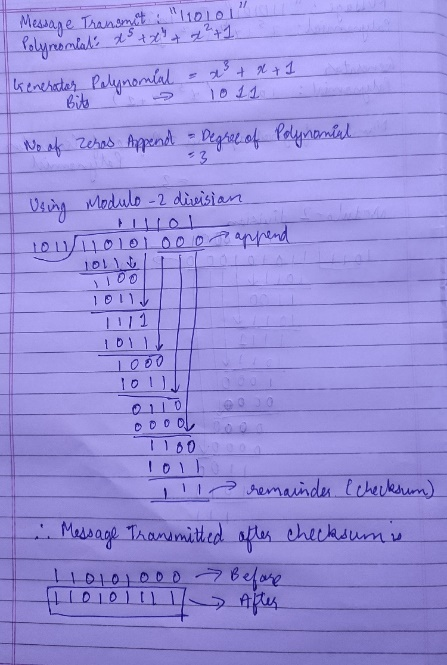 Message Transmit : "110101"
Polynomial: x⁵ + x⁴ + x² + 1
Generator Polynomial = x³ + x + 1
Bits → 1011
No of Zeros Append = Degree of Polynomial
= 3
Using Modulo - 2 division
111101
1011 110101 000 → append
1011
1100
1011
1111
1011
1000
1011
0110
0000
1100
1011
111 → remainder (checksum)
∴ Message Transmitted after checksum is
110101000 → Before
110101111 → After